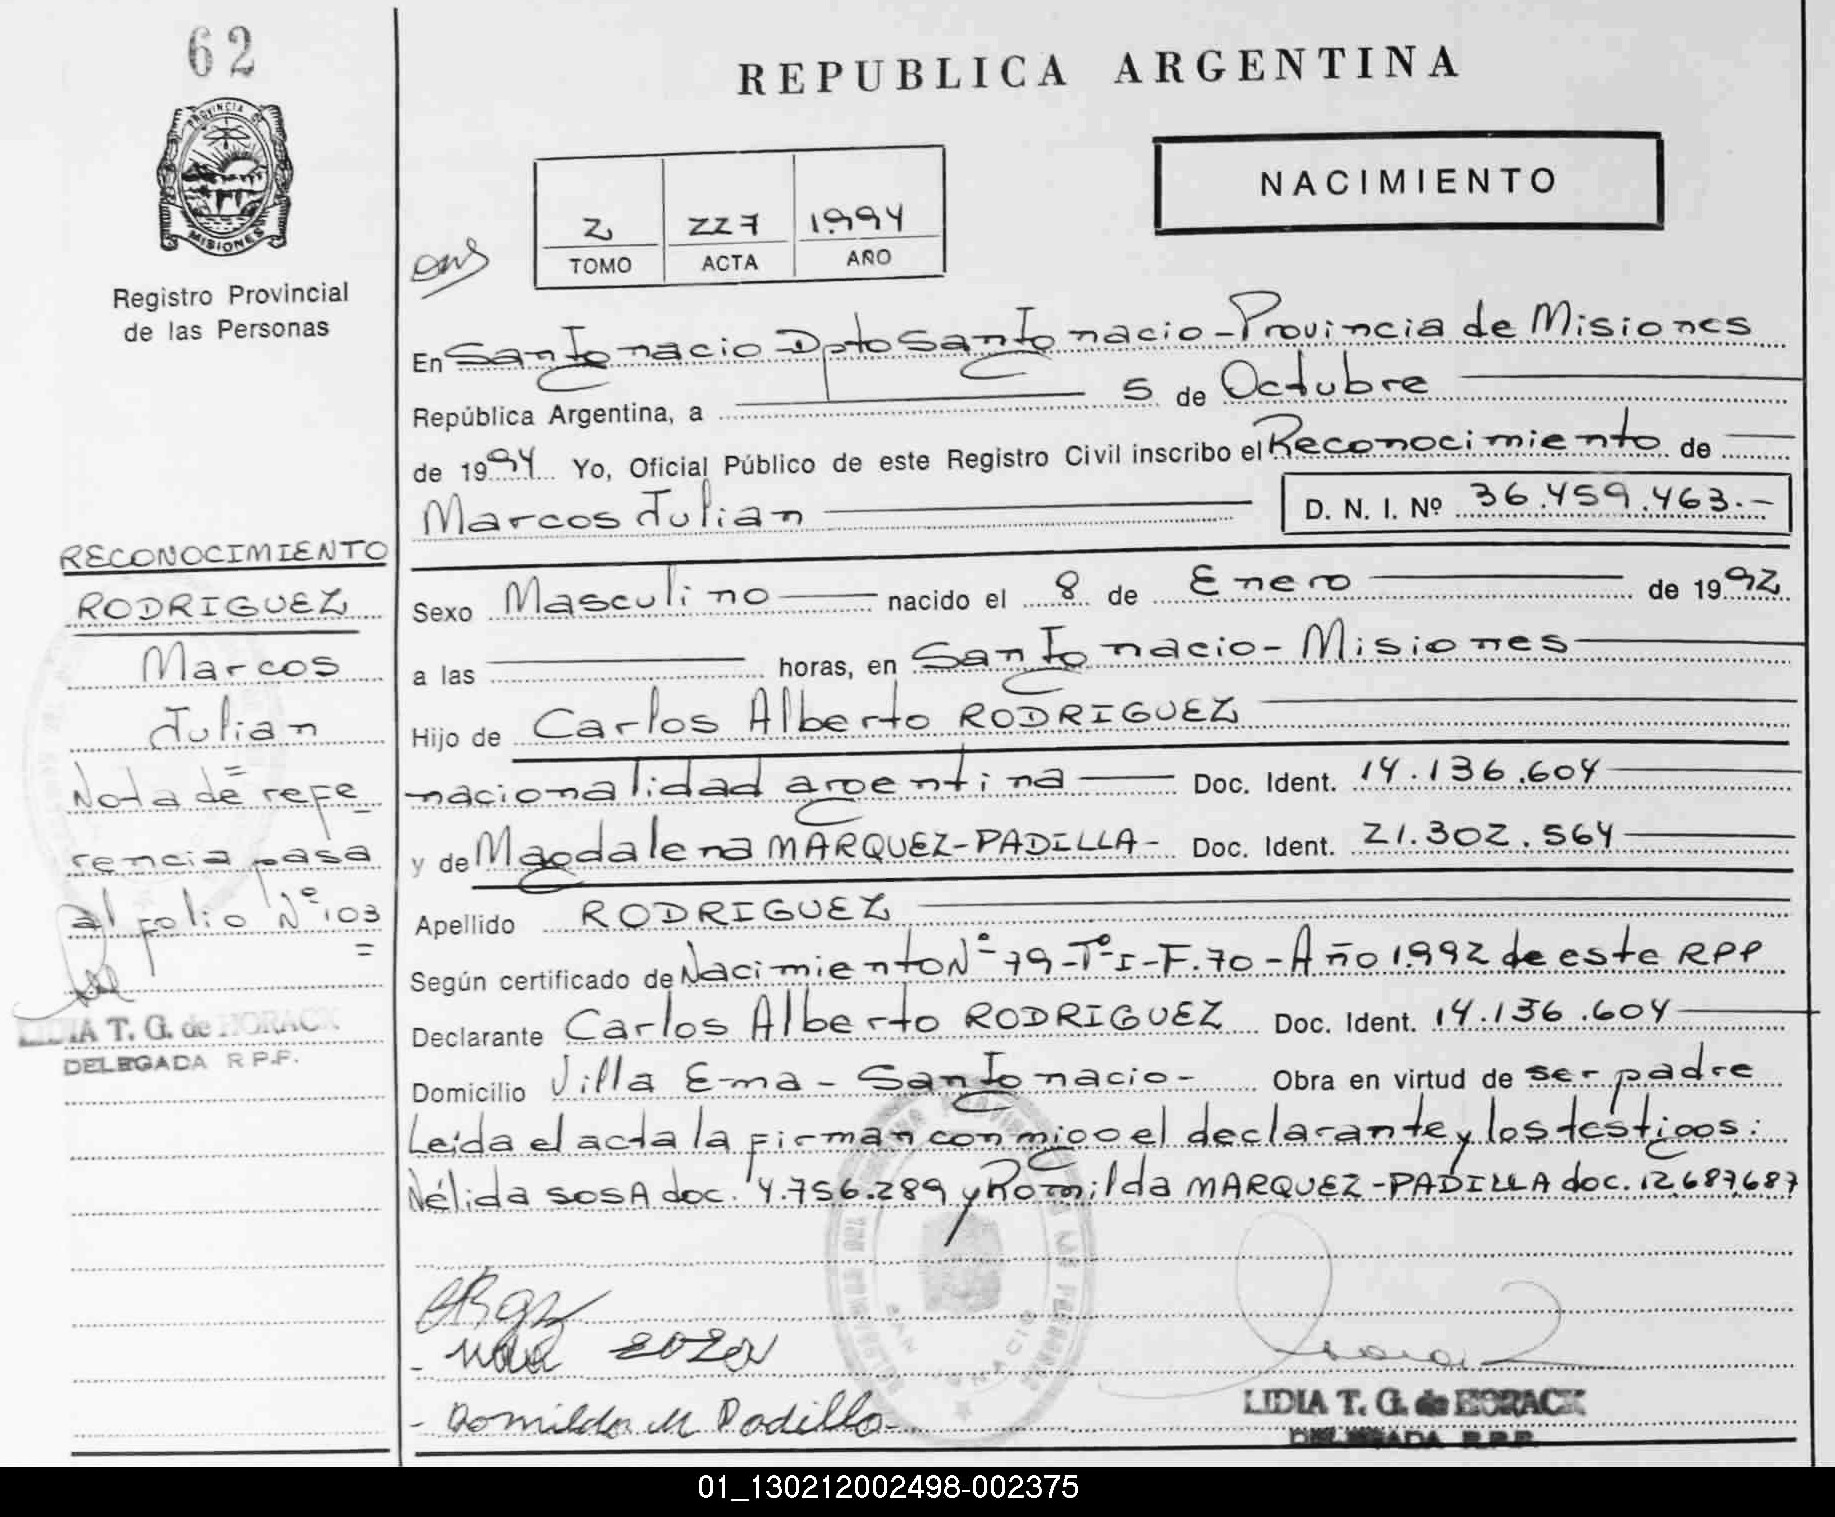 62
PROVINCIA DE
MISIONES
Registro Provincial
de las Personas
RECONOCIMIENTO
RODRIGUEZ
Marcos
Julian
Nota de refe
rencia pasa
al folio Nº 103
LIDIA T. G. de HORACK
DELEGADA R.P.P.
REPUBLICA ARGENTINA
NACIMIENTO
2 227 1994
TOMO ACTA AÑO
En San Ignacio Dpto San Ignacio - Provincia de Misiones
República Argentina, a 5 de Octubre
de 1994 Yo, Oficial Público de este Registro Civil inscribo el Reconocimiento de
Marcos Julian D. N. I. Nº 36.459.463.-
Sexo Masculino nacido el 8 de Enero de 1992
a las horas, en San Ignacio - Misiones
Hijo de Carlos Alberto RODRIGUEZ
nacionalidad argentina Doc. Ident. 14.136.604
y de Magdalena MARQUEZ-PADILLA- Doc. Ident. 21.302.564
Apellido RODRIGUEZ
Según certificado de Nacimiento Nº 79-Tº I-F.70-Año 1992 de este RPP
Declarante Carlos Alberto RODRIGUEZ Doc. Ident. 14.136.604
Domicilio Villa Ema - San Ignacio - Obra en virtud de ser padre
Leída el acta la firman conmigo el declarante y los testigos:
Nélida SOSA doc. 4.756.289 y Romilda MARQUEZ-PADILLA doc. 12.687.687
- Romilda M Padilla-
LIDIA T. G. de HORACK
DELEGADA R.P.P.
01_130212002498-002375